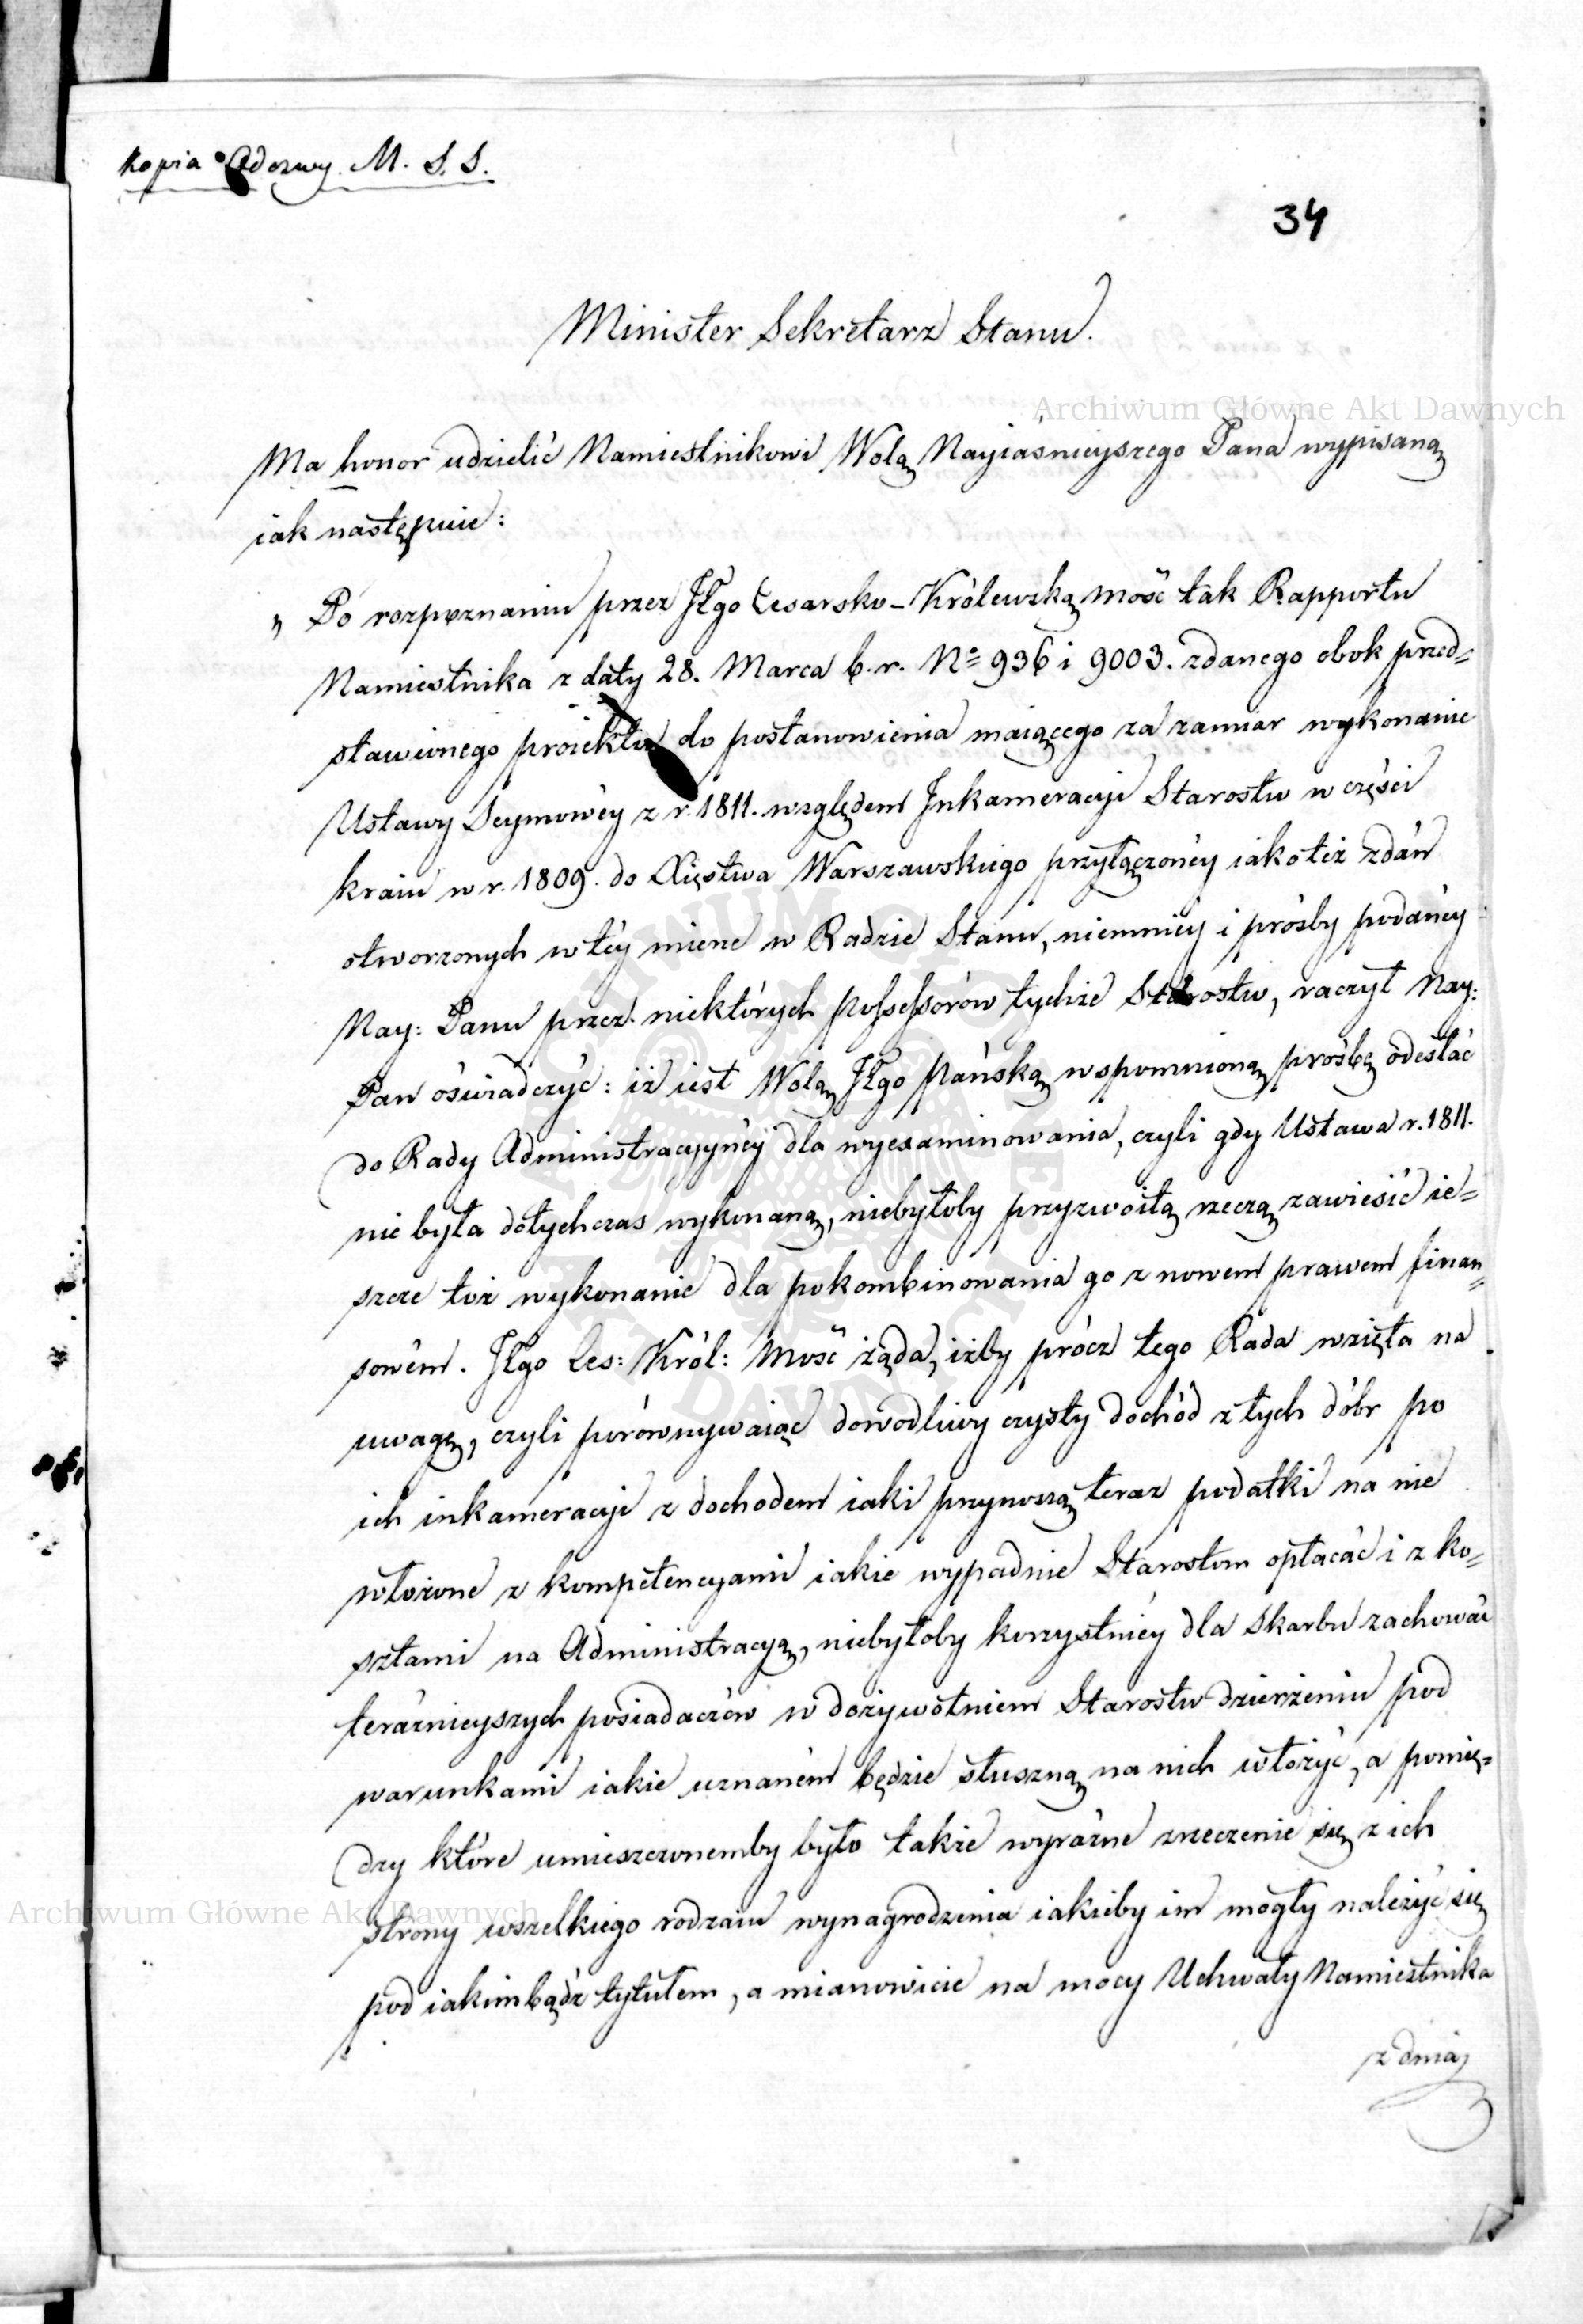 Kopia Odezwy M. S. S.
34
Minister Sekretarz Stanu.
Archiwum Główne Akt Dawnych
Ma honor udzielić Namiestnikowi Wolą Nayiaśnieyszego Pana wypisaną
iak następuie:
„ Po rozpoznaniu przez JEgo Cesarsko-Królewską Mość tak Rapportu
Namiestnika z daty 28. Marca b. r. No 936 i 9003. zdanego obok przed=
stawionego proiektu do postanowienia maiącego za zamiar wykonanie
Ustawy Seymowéy z r. 1811. względem Inkameracyi Starostw w części
kraiu w r. 1809. do Xięstwa Warszawskiego przyłączonéy iakoteż zdań
otworzonych w téy mierze w Radzie Stanu, niemniéy i prośby podanéy
Nay: Panu przez niektórych possessorów tychże Starostw, raczył Nay:
Pan oświadczyć: iż iest Wolą JEgo Pańską wspomnioną prośbę odesłać
do Rady Administracyynéy dla wyexaminowania, czyli gdy Ustawa r. 1811.
nie była dotychczas wykonaną, niebyłoby przyzwoitą rzeczą zawiesić ie=
szcze toż wykonanie dla pokombinowania go z nowem prawem finan=
sowém. JEgo Ces: Król: Mość żąda, iżby prócz tego Rada wzięła na
uwagę, czyli porównywaiąc dowodliwy czysty dochód z tych dóbr po
ich inkameracyi z dochodem iaki przynoszą teraz podatki na nie
włożone z kompetencyami iakie wypadnie Starostom opłacać i z ko=
sztami na Administracyą, niebyłoby korzystniéy dla Skarbu zachować
teraźnieyszych posiadaczów w dożywotniem Starostw dzierżeniu pod
warunkami iakie uznaném będzie słuszną na nich włożyć, a pomię=
dzy które umieszczonemby było także wyraźne zrzeczenie się z ich
Archiwum Główne Akt Dawnych
strony wszelkiego rodzaiu wynagrodzenia iakieby im mogły należyć się
pod iakimbądź tytułem, a mianowicie na mocy Uchwały Namiestnika
z dnia